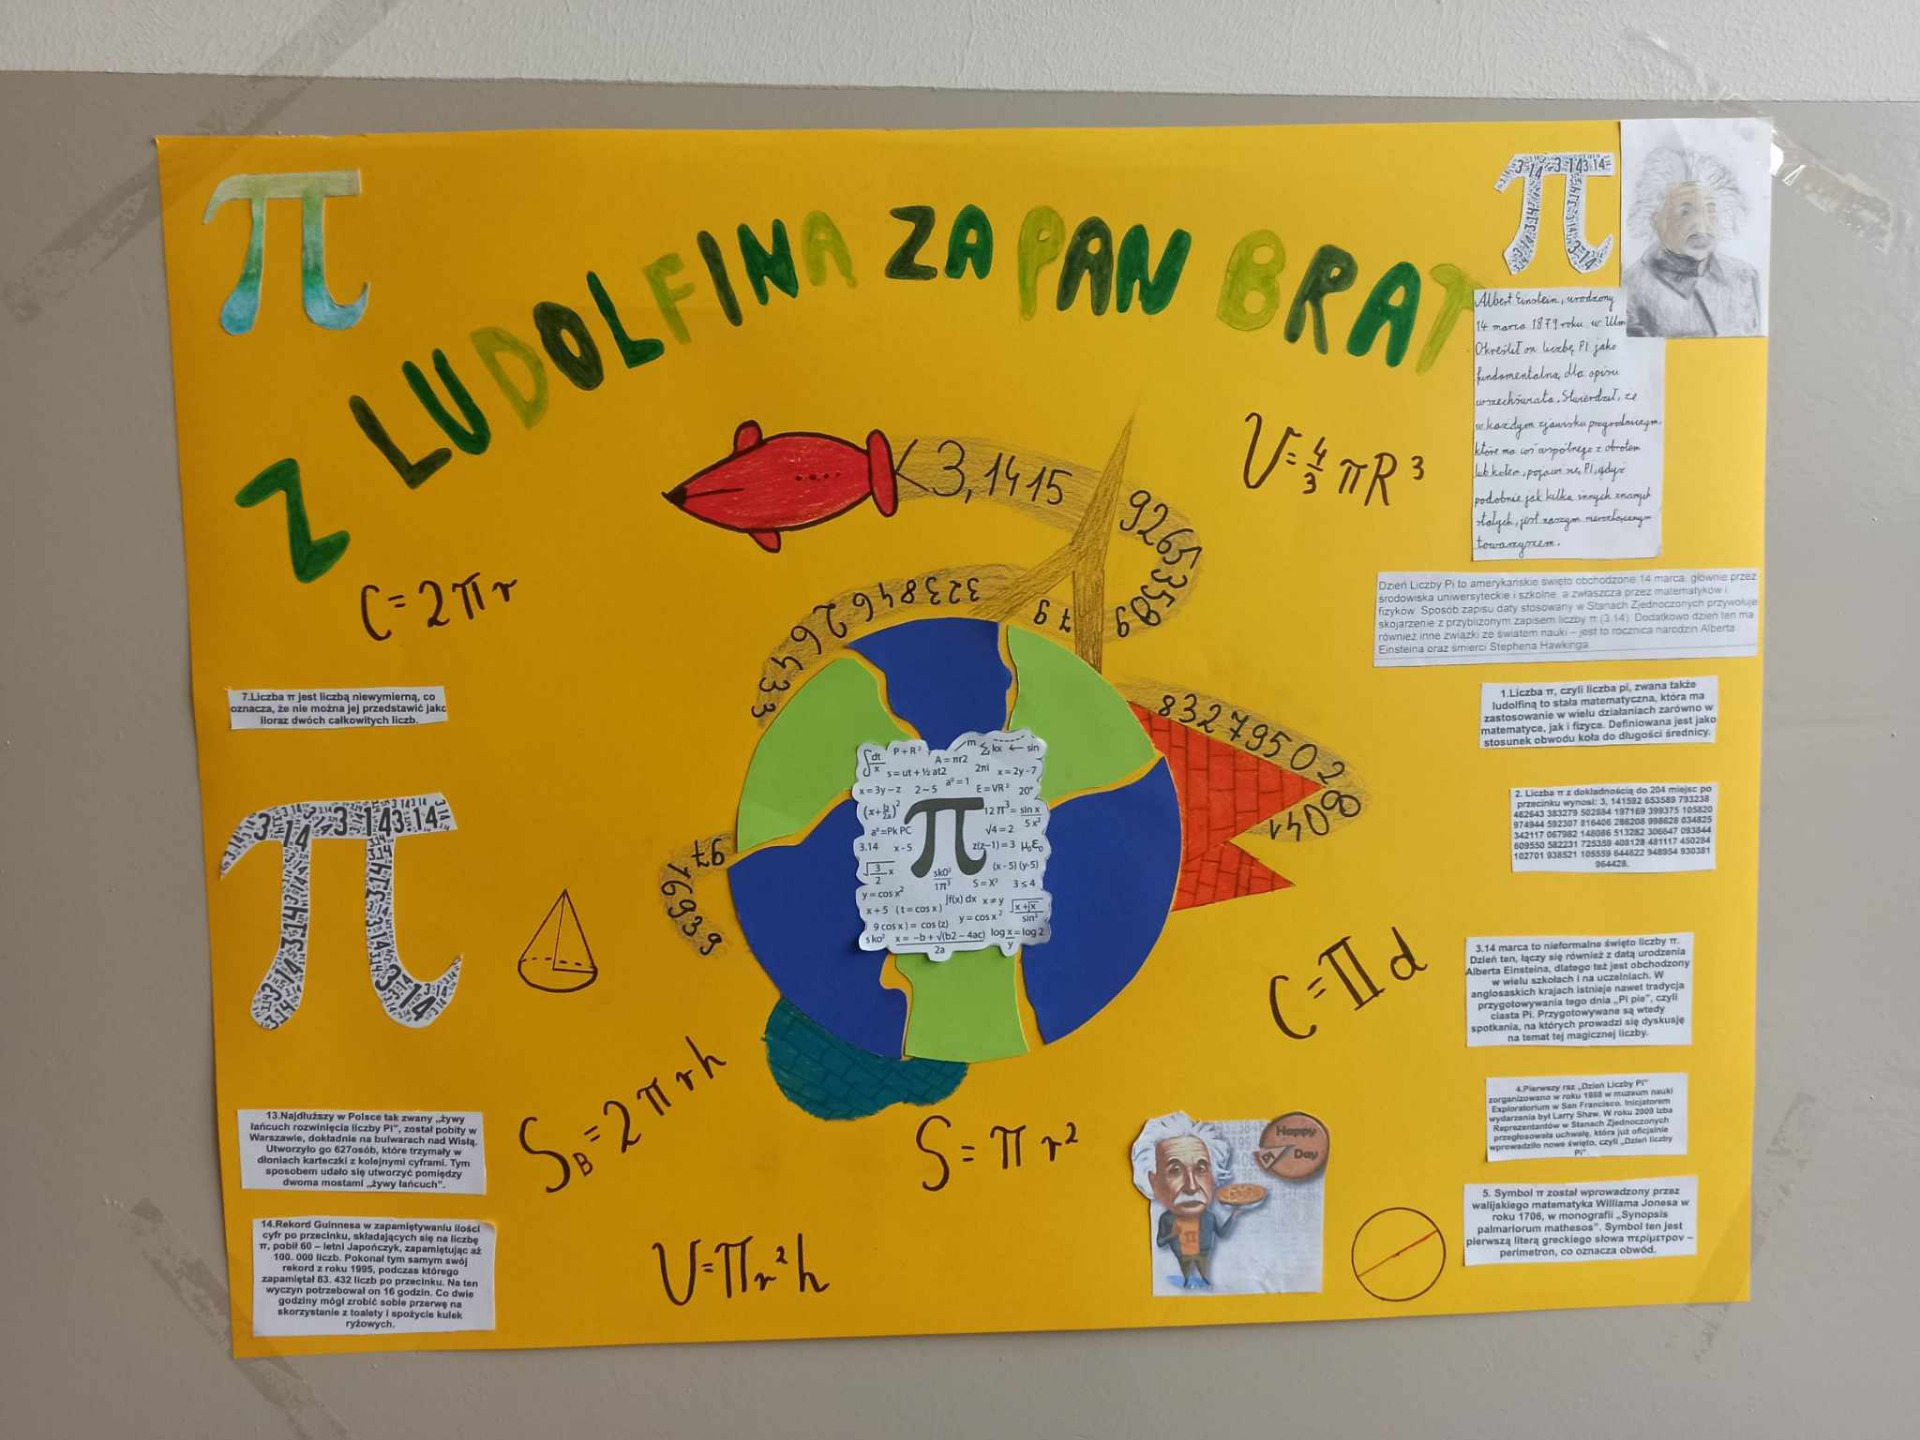 Z LUDOLFINA ZA PAN BRAT
Albert Einstein, urodzony
14 marca 1879 roku w Ulm
Określił on liczbę PI jako
fundamentalną dla opisu
wszechświata. Stwierdził, że
w każdym zjawisku przyrodniczym,
które ma coś wspólnego z obrotem
lub kołem, pojawi się PI, gdyż
podobnie jak kilka innych znanych
stałych, jest naszym nieodłącznym
towarzyszem.
<3,1415
92653589
79
3238462643 3
83279502
8041
97
16939
V=4/3 πR³
C=2πr
C=Πd
S_B=2πrh
S=πr²
V=Πr²h
Dzień Liczby Pi to amerykańskie święto obchodzone 14 marca, głównie przez
środowiska uniwersyteckie i szkolne, a zwłaszcza przez matematyków i
fizyków. Sposób zapisu daty stosowany w Stanach Zjednoczonych przywołuje
skojarzenie z przybliżonym zapisem liczby π (3.14). Dodatkowo dzień ten ma
również inne związki ze światem nauki – jest to rocznica narodzin Alberta
Einsteina oraz śmierci Stephena Hawkinga.
7.Liczba π jest liczbą niewymierną, co
oznacza, że nie można jej przedstawić jako
iloraz dwóch całkowitych liczb.
1.Liczba π, czyli liczba pi, zwana także
ludolfiną to stała matematyczna, która ma
zastosowanie w wielu działaniach zarówno w
matematyce, jak i fizyce. Definiowana jest jako
stosunek obwodu koła do długości średnicy.
2. Liczba π z dokładnością do 204 miejsc po
przecinku wynosi: 3, 141592 653589 793238
462643 383279 502884 197169 399375 105820
974944 592307 816406 286208 998628 034825
342117 067982 148086 513282 306647 093844
609550 582231 725359 408128 481117 450284
102701 938521 105559 644622 948954 930381
964428.
3.14 marca to nieformalne święto liczby π.
Dzień ten, łączy się również z datą urodzenia
Alberta Einsteina, dlatego też jest obchodzony
w wielu szkołach i na uczelniach. W
anglosaskich krajach istnieje nawet tradycja
przygotowywania tego dnia „Pi pie", czyli
ciasta Pi. Przygotowywane są wtedy
spotkania, na których prowadzi się dyskusję
na temat tej magicznej liczby.
4.Pierwszy raz „Dzień Liczby Pi"
zorganizowano w roku 1988 w muzeum nauki
Exploratorium w San Francisco. Inicjatorem
wydarzenia był Larry Shaw. W roku 2009 Izba
Reprezentantów w Stanach Zjednoczonych
przegłosowała uchwałę, która już oficjalnie
wprowadziło nowe święto, czyli „Dzień liczby
Pi".
5. Symbol π został wprowadzony przez
walijskiego matematyka Williama Jonesa w
roku 1706, w monografii „Synopsis
palmariorum mathesos". Symbol ten jest
pierwszą literą greckiego słowa περίμετρον –
perimetron, co oznacza obwód.
13.Najdłuższy w Polsce tak zwany „żywy
łańcuch rozwinięcia liczby Pi", został pobity w
Warszawie, dokładnie na bulwarach nad Wisłą.
Utworzyło go 627osób, które trzymały w
dłoniach karteczki z kolejnymi cyframi. Tym
sposobem udało się utworzyć pomiędzy
dwoma mostami „żywy łańcuch".
14.Rekord Guinnesa w zapamiętywaniu ilości
cyfr po przecinku, składających się na liczbę
π, pobił 60 – letni Japończyk, zapamiętując aż
100. 000 liczb. Pokonał tym samym swój
rekord z roku 1995, podczas którego
zapamiętał 83. 432 liczb po przecinku. Na ten
wyczyn potrzebował on 16 godzin. Co dwie
godziny mógł zrobić sobie przerwę na
skorzystanie z toalety i spożycie kulek
ryżowych.
π
Happy
Pi Day